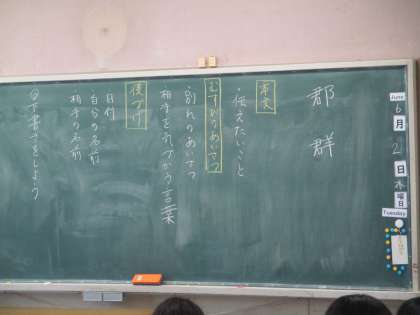 June
6
月
2
日
曜
日
Tuesday
郡 群
本文
・伝えたいこと
むすびのあいさつ
・別れのあいさつ
相手を気づかう言葉
後づけ
日付
自分の名前
相手の名前
下書きをしよう